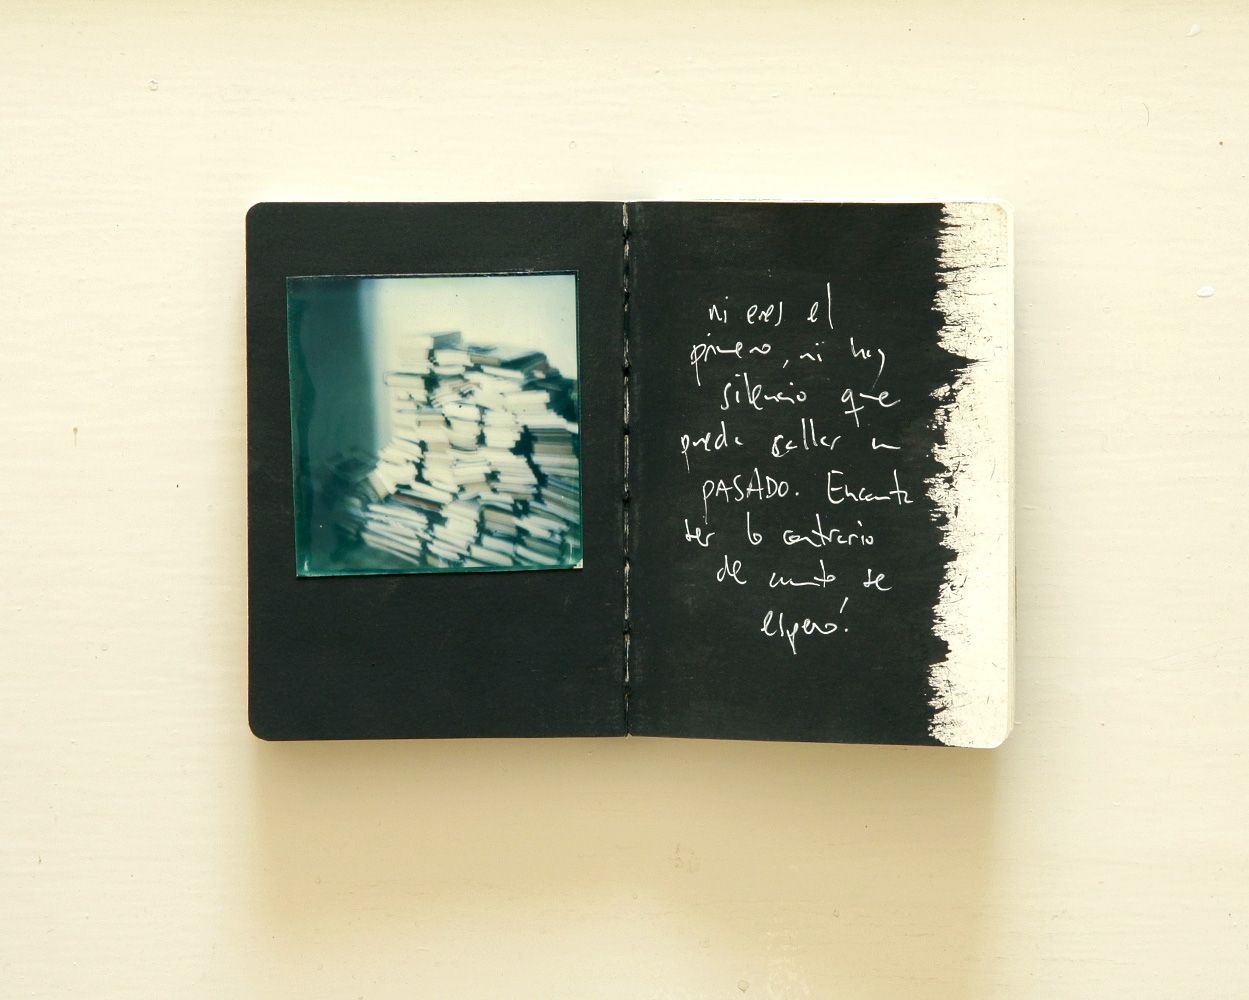 ni eres el
primero, ni hay
silencio que
pueda callar un
PASADO. Encanta
ser lo contrario
de cuanto se
esperó!